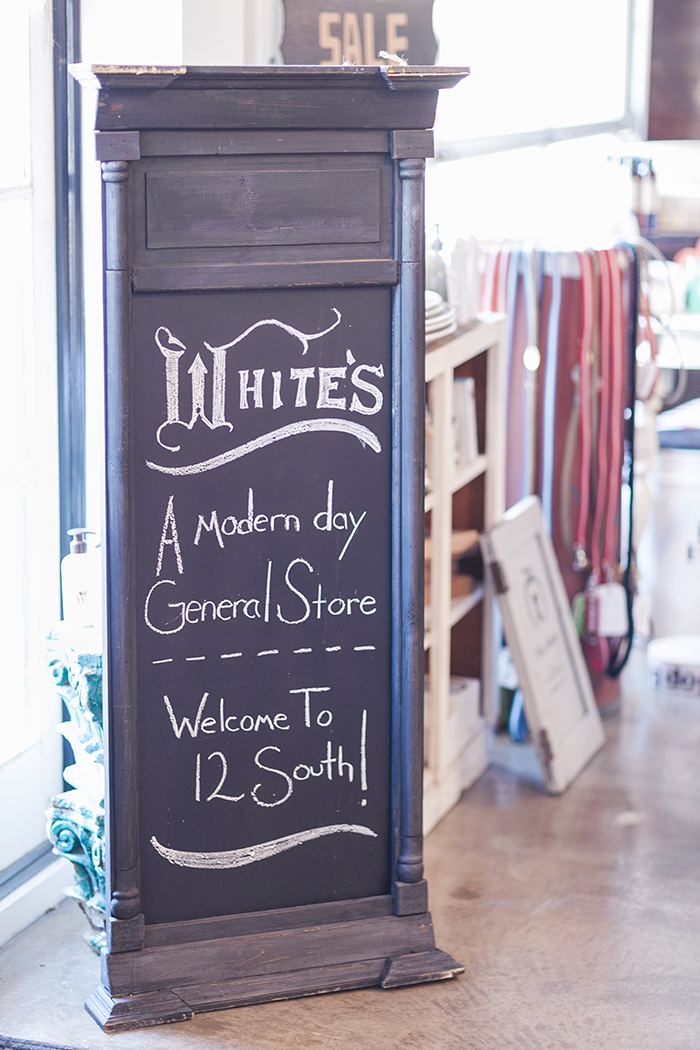 SALE
WHITE'S
A Modern day
General Store
Welcome To
12 South!